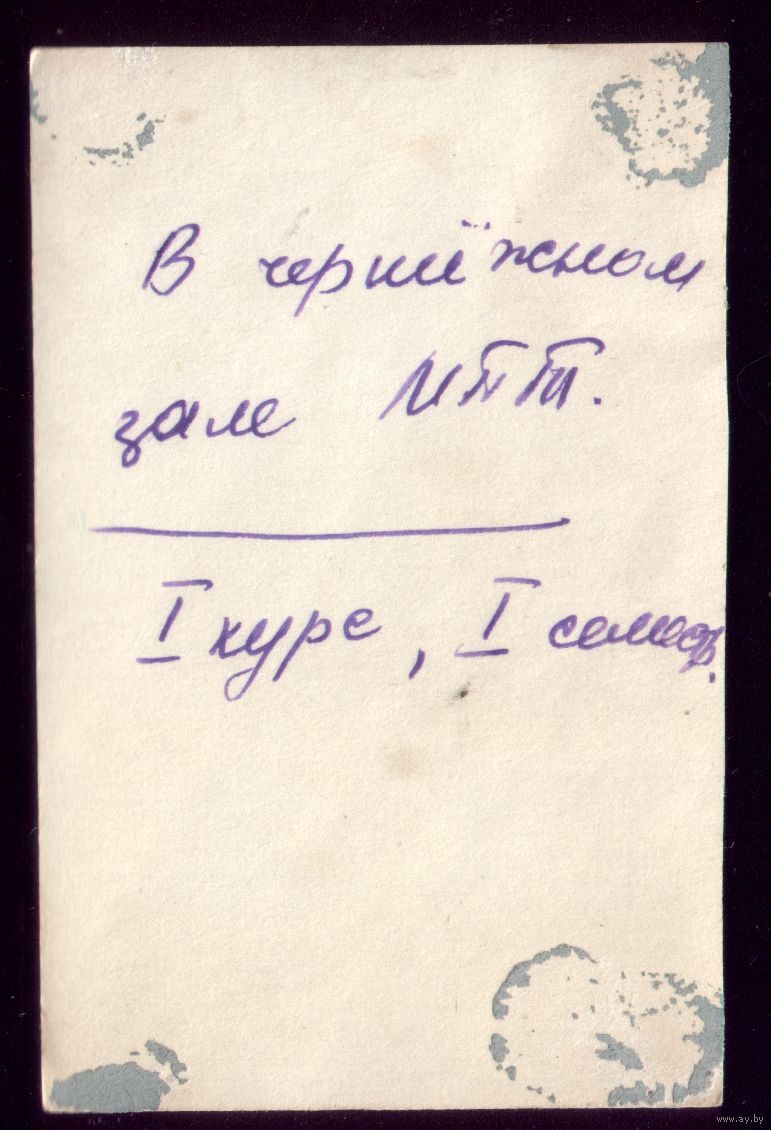 В чертёжном
зале МПТ.
I курс, I семестр.
www.ay.by